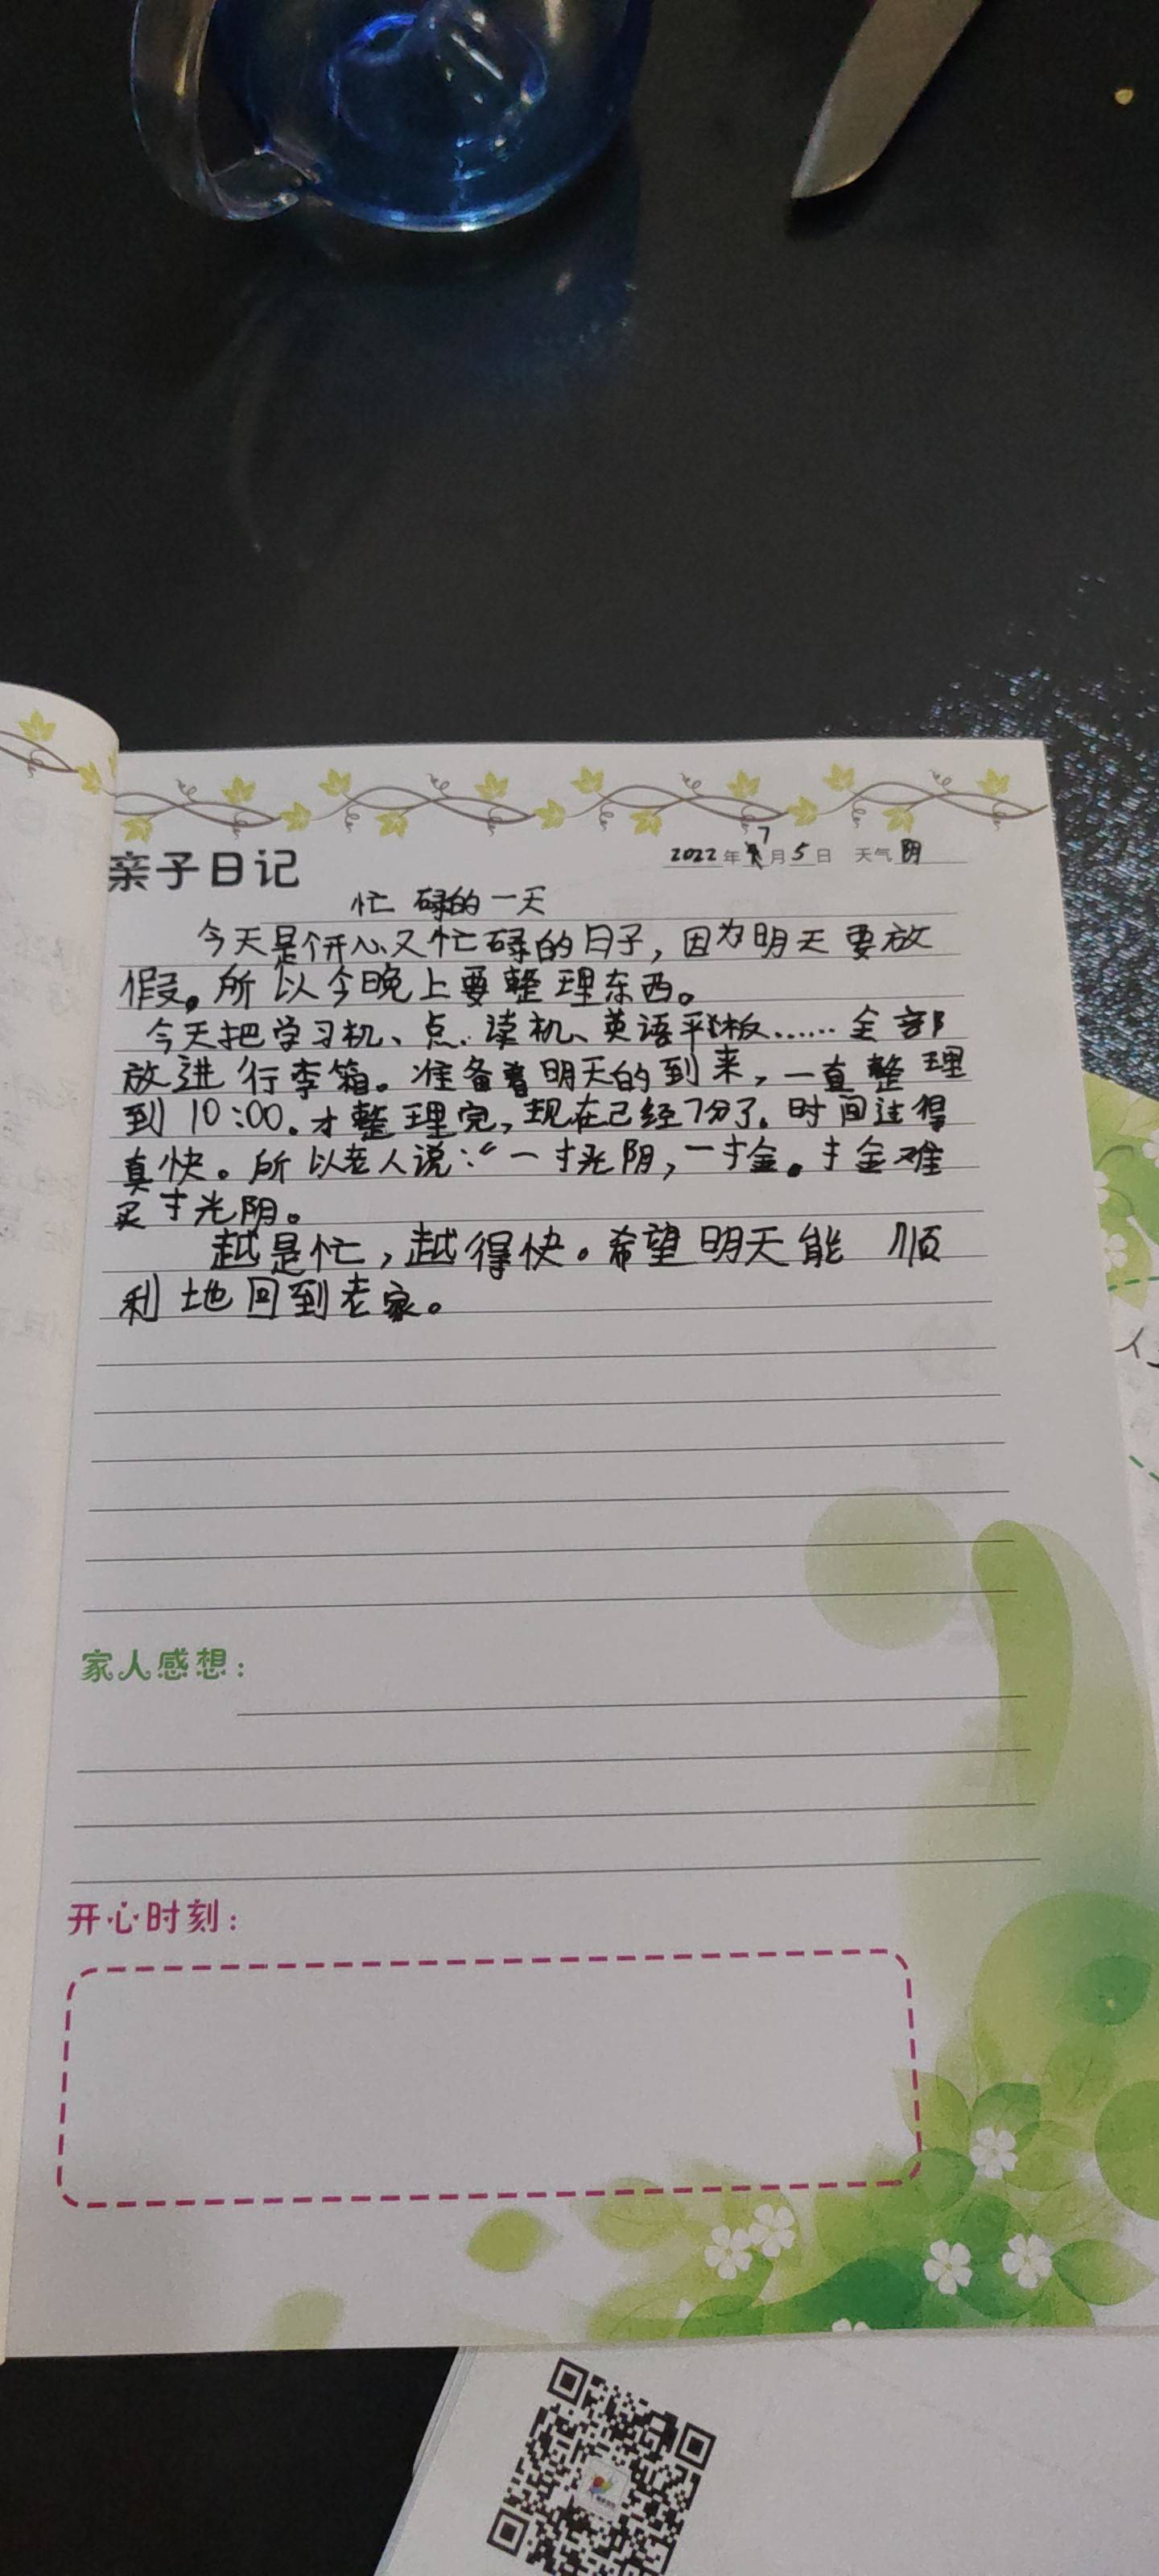 亲子日记
2022年7月5日 天气阴
忙碌的一天
今天是个开心又忙碌的日子，因为明天要放
假。所以今晚上要整理东西。
今天把学习机、点读机、英语平板……全部
放进行李箱。准备着明天的到来，一直整理
到10:00。才整理完，现在已经7分了。时间过得
真快。所以老人说：“一寸光阴，一寸金。寸金难
买寸光阴。
越是忙，越得快。希望明天能 顺
利地回到老家。
家人感想：
开心时刻：